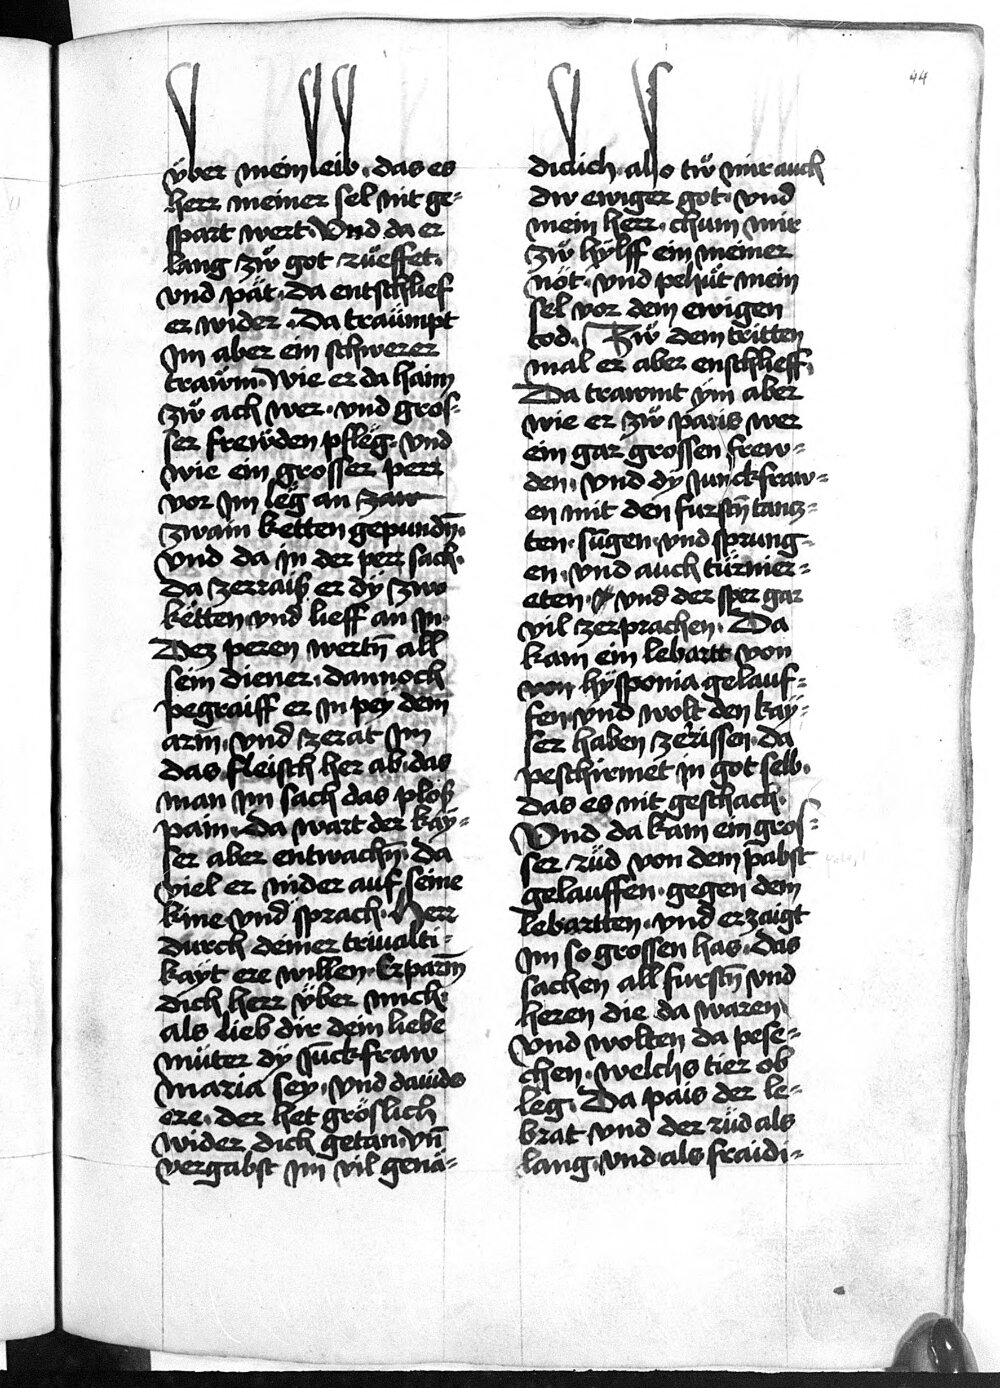 44
über mein leib · das es
herr meiner sel nit ge-
spart wert · Vnd da er
lang zw̎ got rüeffet ·
vnd pät · Da entschlief
er wider · Da traümpt
jm aber ein schwerer
trawm · Wie er da haim
zw̎ ach wer · vnd gros-
ser frewden pfleg · vnd
wie ein grosser perr
vor jm leg an zaw
zwain ketten gepundn̄ ·
vnd da jn der perr sach ·
da zerraiß er dÿ zwo
ketten vnd lieff an jn ·
Dez peren wertn̄ all
sein diener · dannoch
pegraiff er jn pey dem
arm̄ · vnd zerat jm
das fleisch her ab · das
man jm sach das plöß
pain · da wart der kay-
ser aber entwachn̄ · da
viel er nider auf seine
knie vnd sprach · Herr
durch deiner triualti-
kayt ere willen · Erparm̄
dich herr ÿber mich ·
als lieb dir dein liebe
müter dy jūckfraw
maria sey · vnd dauids
ere · der het gröslich
wider dich getan · vn̄
vergabst jm vil genä-
diclich · also tw̎ mir auch
dw ewiger got · vnd
mein herr · chum mir
zw̎ hÿlff ein meiner
nöt · vnd pehüt mein
sel vor dem ewigen
tod · Zw̎ dem tritten
mal er aber enschlieff ·
Da trawmt ÿm aber
wie er zw̎ paris wer
ein gar grossen frew-
den · vnd dy junckfraw-
en mit den furstn̄ tanz-
ten · sungen · vnd sprung-
en · vnd auch türnier-
eten · vnd der sper gar
vil zerprachen · Da
kam ein lebartt von
von hÿsponia gelauf-
fen · vnd wolt den kaÿ-
ser haben zerissen · da
peschirmet jn got selb ·
das es nit geschach ·
Vnd da kam ein gros-
ser rüd von dem pabst
gelauffen · gegen dem
lebartten · vnd erzaigt
jm so grossen has · das
sachen all furstn̄ vnd
heren die da waren
vnd wolten da pese-
chen · welchs tier ob
leg · Da pais der le-
brat vnd der rüd als
lang · vnd als fraidi-